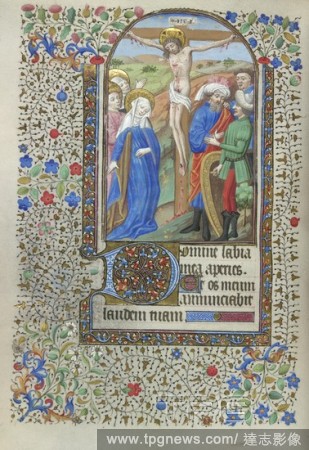 omine labia
mea aperies.
Et os meum
annunciabit
laudem tuam
www.tpgnews.com/ 達志影像